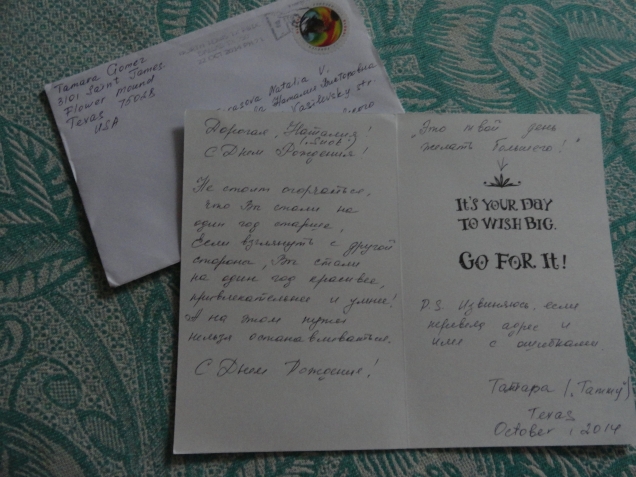 Tamara Gomez
3101 Saint James
Flower Mound
Texas 75028
USA
Natalia V.
Наталии Викторовне
Vasilevsky str.
Дорогая, Наталия!
С Днем Рождения!
Не стоит огорчаться,
что Вы стали на
один год старше,
Если взглянуть с другой
стороны, Вы стали
на один год красивее,
привлекательнее и умнее!
А на этом нужно
нельзя останавливаться.
С Днем Рождения!
„Это твой день
желать большого!"
IT'S YOUR DAY
TO WISH BIG.
GO FOR IT!
P.S. Извиняюсь, если
перевела адрес и
имя с ошибками.
Тамара („Tammy")
Texas
October, 2014